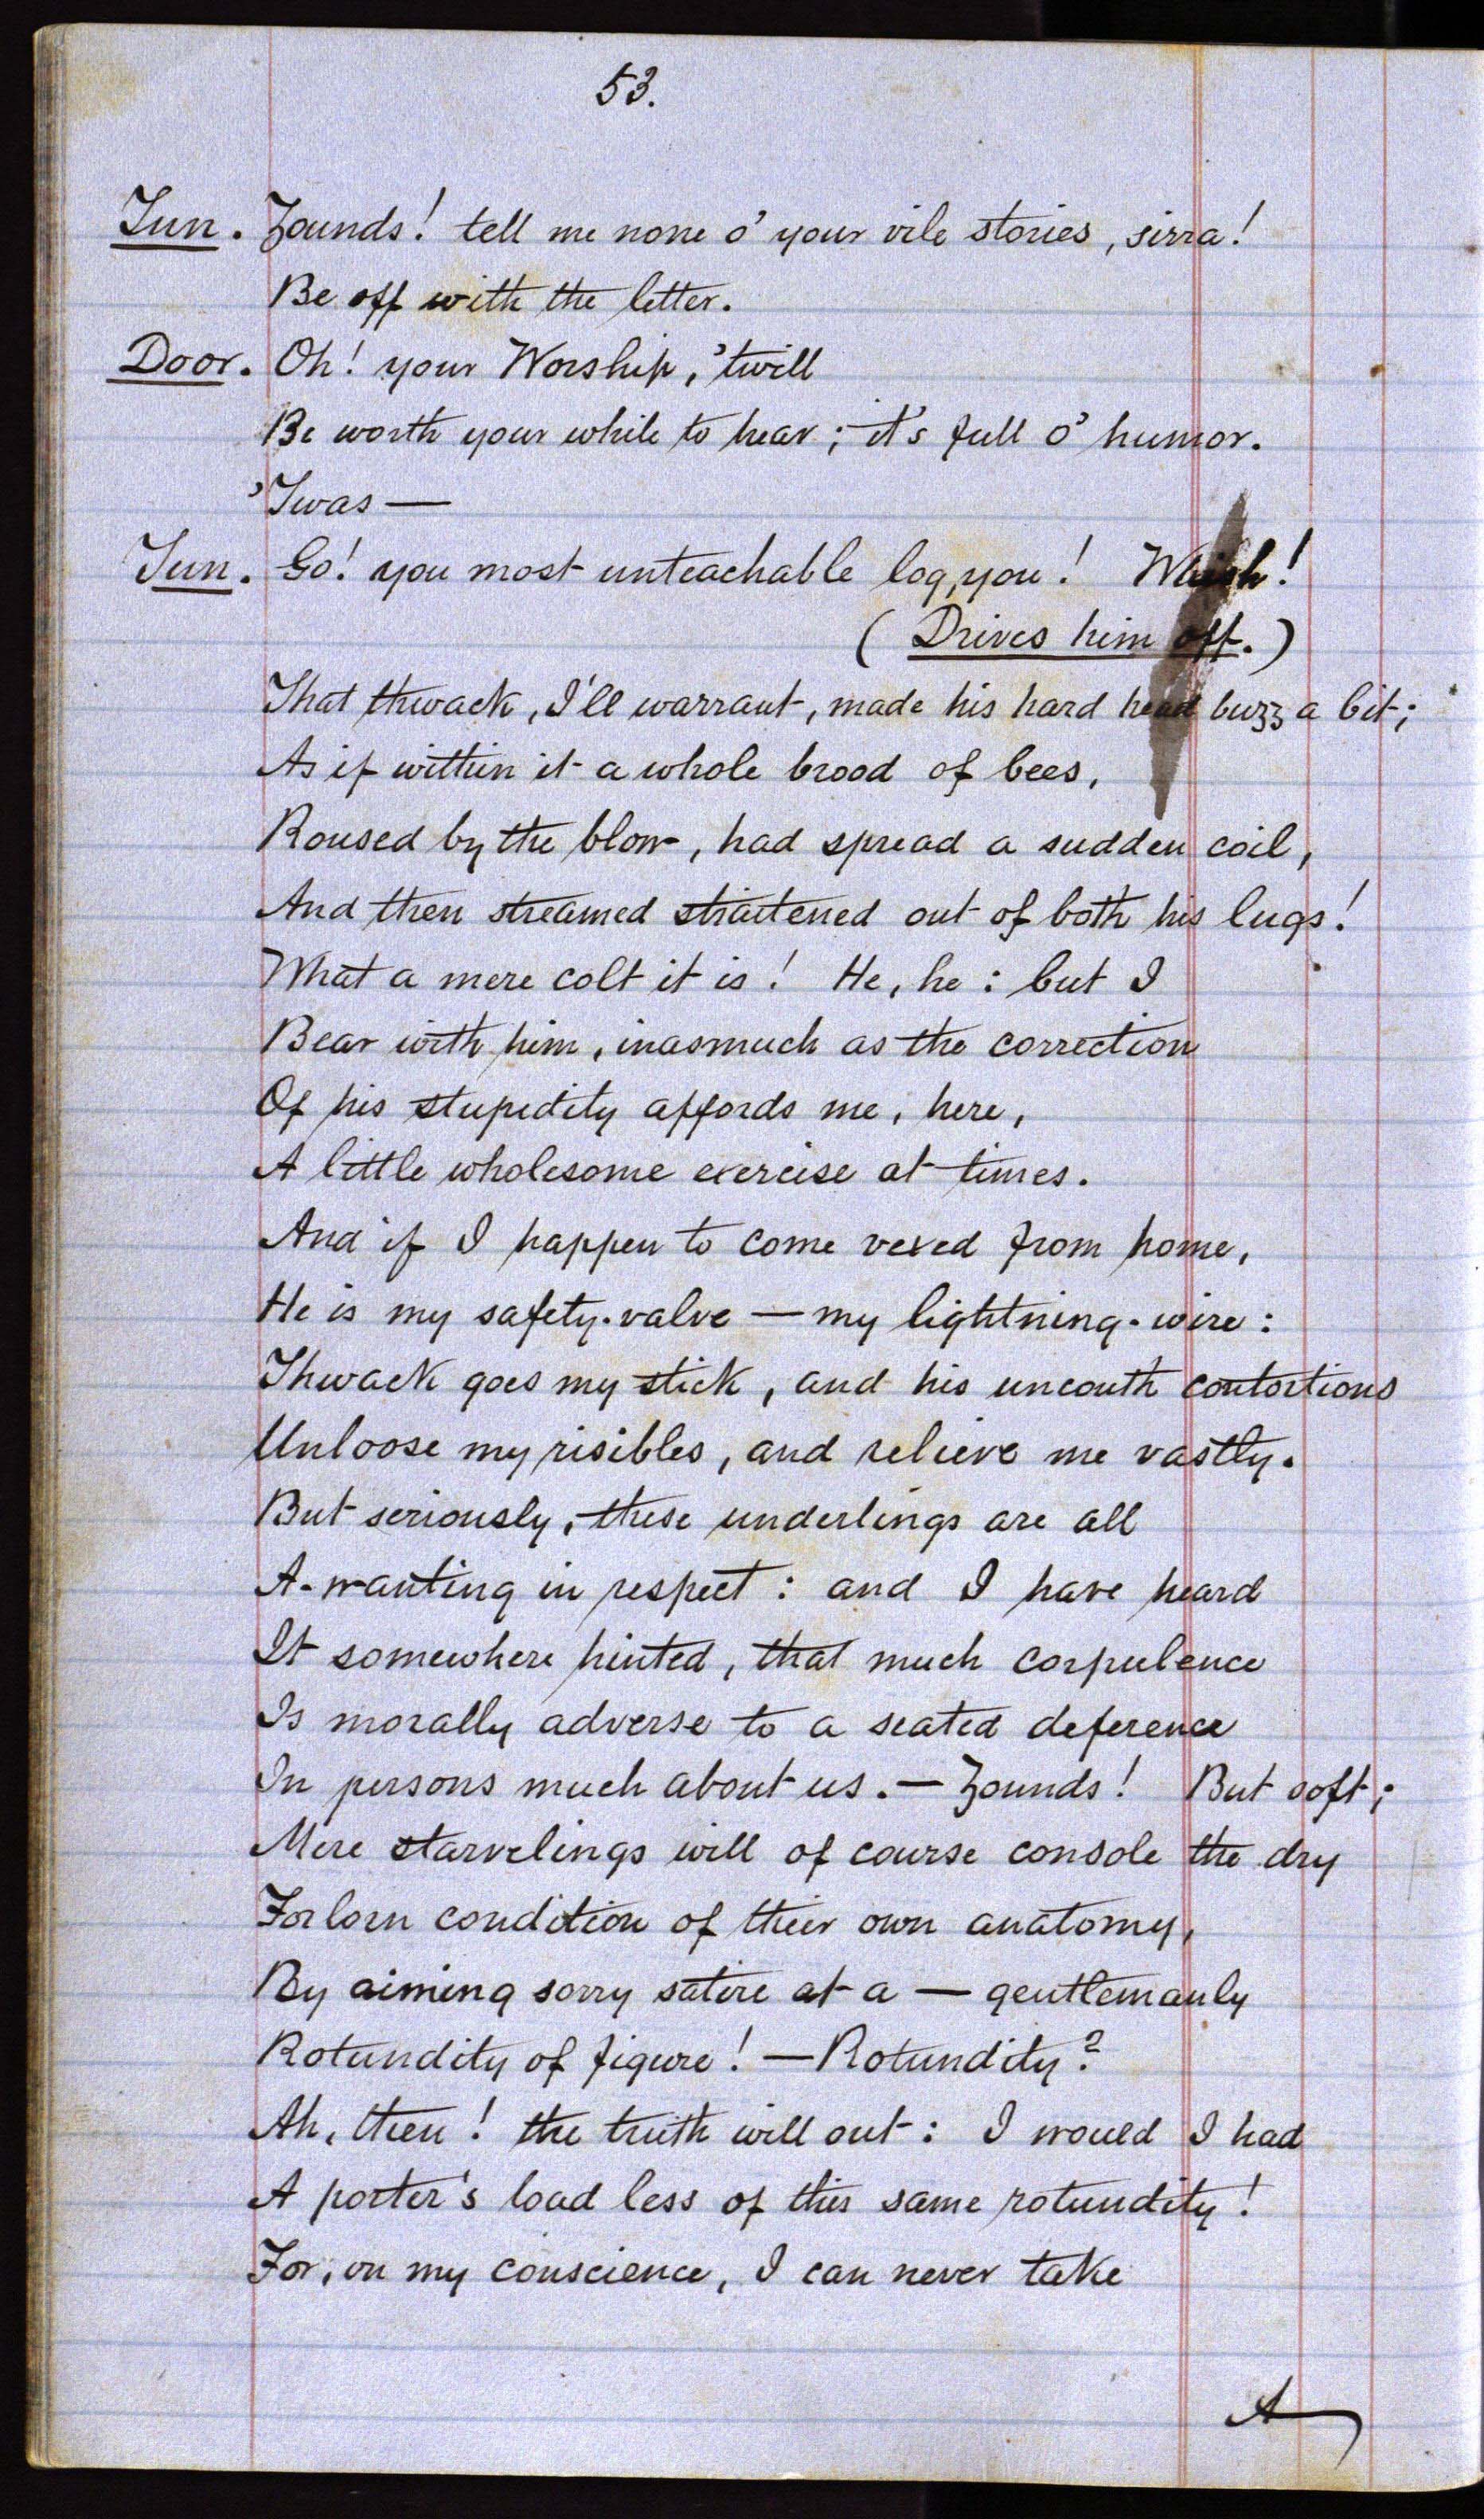 53.
Tun. Zounds! tell me none o' your vile stories, sirra!
Be off with the letter.
Door. Oh! your Worship, 'twill
Be worth your while to hear; it's full o' humor.
'Twas —
Tun. Go! you most unteachable log, you! Whish!
(Drives him off.)
That thwack, I'll warrant, made his hard head buzz a bit;
As if within it a whole brood of bees,
Roused by the blow, had spread a sudden coil,
And then streamed straitened out of both his lugs!
What a mere colt it is! He, he: but I
Bear with him, inasmuch as the correction
Of his stupidity affords me, here,
A little wholesome exercise at times.
And if I happen to come vexed from home,
He is my safety-valve — my lightning-wire:
Thwack goes my stick, and his uncouth contortions
Unloose my risibles, and relieve me vastly.
But seriously, these underlings are all
A-wanting in respect: and I have heard
It somewhere hinted, that much corpulence
Is morally adverse to a seated deference
In persons much about us. — Zounds! But soft;
Mere starvelings will of course console the dry
Forlorn condition of their own anatomy,
By aiming sorry satire at a — gentlemanly
Rotundity of figure! — Rotundity?
Ah, then! the truth will out: I would I had
A porter's load less of this same rotundity!
For, on my conscience, I can never take
A